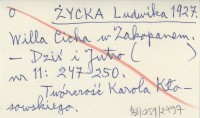 o ŻYCKA Ludwika 1927.
Willa Cicha w Zakopanem.
— Dziś i Jutro ( )
nr 11: 247-250.
Twórczość Karola Kło-
sowskiego.